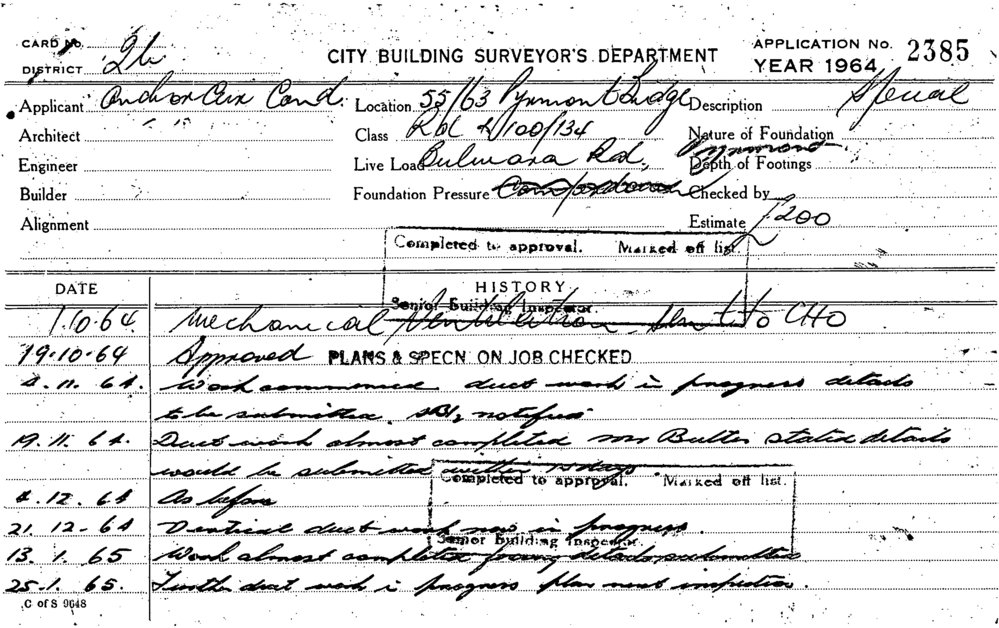 CARD No. 26
DISTRICT
CITY BUILDING SURVEYOR'S DEPARTMENT
APPLICATION No. 2385
YEAR 1964
Applicant Anchor Air Cond. Location 55/63 Pyrmont Bridge Description Special
Architect Class Rd & 100/134 Nature of Foundation
Engineer Live Load Bulwara Rd, Pyrmont Depth of Footings
Builder Foundation Pressure Checked by
Alignment Estimate £200
Completed to approval. Marked off list.
Senior Building Inspector.
DATE HISTORY
1.10.64 Mechanical Ventilation sent to CHO
19.10.64 Approved PLANS & SPECN. ON JOB CHECKED
4.11.64. Work commenced duct work in progress details
to be submitted notified
19.11.64. Duct work almost completed Mr Butler stated details
would be submitted within days.
Completed to approval. Marked off list.
4.12.64 As before
21.12.64 duct work now in progress.
Senior Building Inspector.
13.1.65 Work almost completed details submitted
25.1.65. Further duct work in progress plan next inspection.
C of S 9648